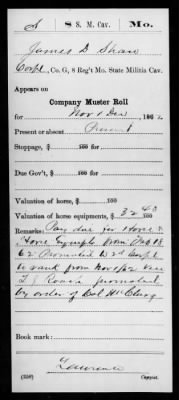 S 8 S. M. Cav. Mo.
James D Shaw
Corpl, Co. G, 8 Reg't Mo. State Militia Cav.
Appears on
Company Muster Roll
for Nov & Dec, 1862
Present or absent Present
Stoppage, $ 100 for
Due Gov't, $ 100 for
Valuation of horse, $ 100
Valuation of horse equipments, $ 100
Remarks: Pay due for Horse &
Horse Equipts from Sep 18
62 Promoted 2d Corpl
to rank from Nov 1/62 vice
by order of Col
Book mark:
Lawrence
(359) Copyist.